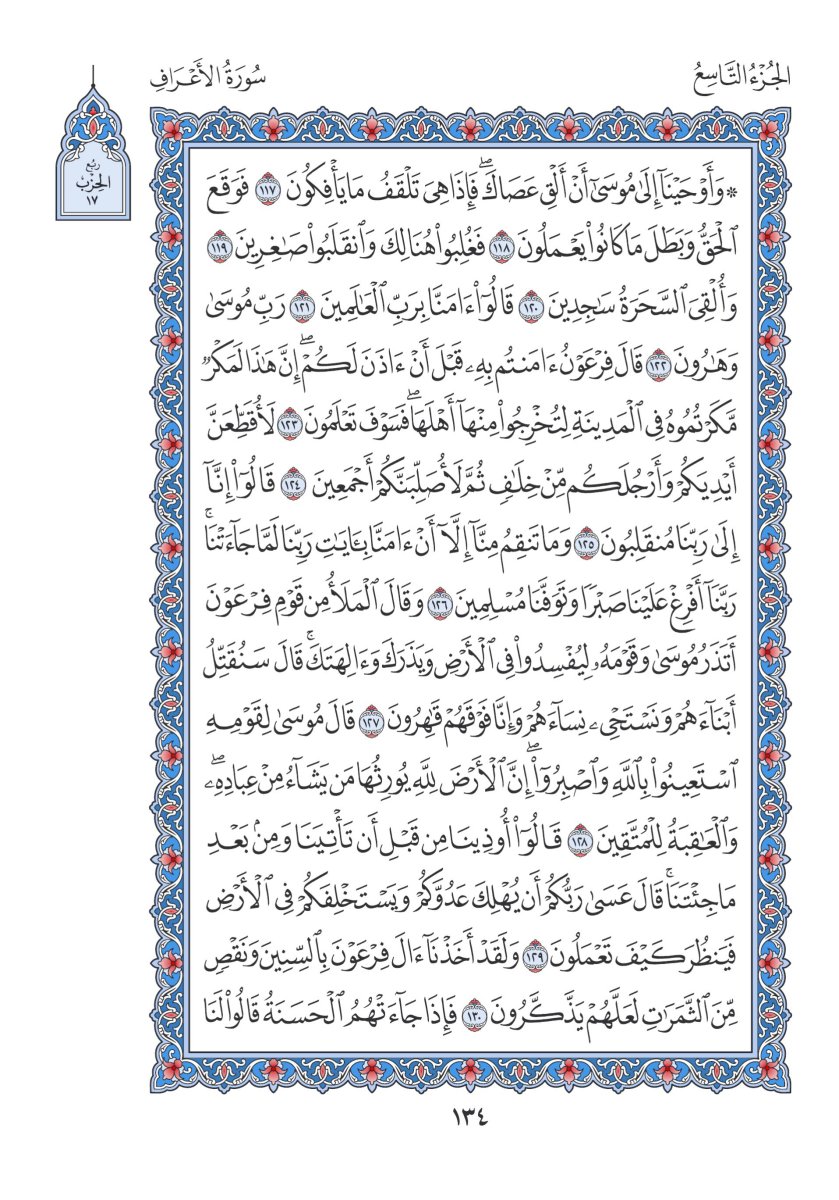 الجُزْءُ التَّاسِعُ
سُورَةُ الأَعْرَافِ
رُبْع
الحِزْبِ
١٧
* وَأَوْحَيْنَآ إِلَىٰ مُوسَىٰٓ أَنْ أَلْقِ عَصَاكَۖ فَإِذَا هِىَ تَلْقَفُ مَا يَأْفِكُونَ ١١٧ فَوَقَعَ
ٱلْحَقُّ وَبَطَلَ مَا كَانُوا۟ يَعْمَلُونَ ١١٨ فَغُلِبُوا۟ هُنَالِكَ وَٱنقَلَبُوا۟ صَـٰغِرِينَ ١١٩
وَأُلْقِىَ ٱلسَّحَرَةُ سَـٰجِدِينَ ١٢٠ قَالُوٓا۟ ءَامَنَّا بِرَبِّ ٱلْعَـٰلَمِينَ ١٢١ رَبِّ مُوسَىٰ
وَهَـٰرُونَ ١٢٢ قَالَ فِرْعَوْنُ ءَامَنتُم بِهِۦ قَبْلَ أَنْ ءَاذَنَ لَكُمْۖ إِنَّ هَـٰذَا لَمَكْرٌ
مَّكَرْتُمُوهُ فِى ٱلْمَدِينَةِ لِتُخْرِجُوا۟ مِنْهَآ أَهْلَهَاۖ فَسَوْفَ تَعْلَمُونَ ١٢٣ لَأُقَطِّعَنَّ
أَيْدِيَكُمْ وَأَرْجُلَكُم مِّنْ خِلَـٰفٍ ثُمَّ لَأُصَلِّبَنَّكُمْ أَجْمَعِينَ ١٢٤ قَالُوٓا۟ إِنَّآ
إِلَىٰ رَبِّنَا مُنقَلِبُونَ ١٢٥ وَمَا تَنقِمُ مِنَّآ إِلَّآ أَنْ ءَامَنَّا بِـَٔايَـٰتِ رَبِّنَا لَمَّا جَآءَتْنَاۚ
رَبَّنَآ أَفْرِغْ عَلَيْنَا صَبْرًا وَتَوَفَّنَا مُسْلِمِينَ ١٢٦ وَقَالَ ٱلْمَلَأُ مِن قَوْمِ فِرْعَوْنَ
أَتَذَرُ مُوسَىٰ وَقَوْمَهُۥ لِيُفْسِدُوا۟ فِى ٱلْأَرْضِ وَيَذَرَكَ وَءَالِهَتَكَۚ قَالَ سَنُقَتِّلُ
أَبْنَآءَهُمْ وَنَسْتَحْىِۦ نِسَآءَهُمْ وَإِنَّا فَوْقَهُمْ قَـٰهِرُونَ ١٢٧ قَالَ مُوسَىٰ لِقَوْمِهِ
ٱسْتَعِينُوا۟ بِٱللَّهِ وَٱصْبِرُوٓا۟ۖ إِنَّ ٱلْأَرْضَ لِلَّهِ يُورِثُهَا مَن يَشَآءُ مِنْ عِبَادِهِۦۖ
وَٱلْعَـٰقِبَةُ لِلْمُتَّقِينَ ١٢٨ قَالُوٓا۟ أُوذِينَا مِن قَبْلِ أَن تَأْتِيَنَا وَمِنۢ بَعْدِ
مَا جِئْتَنَاۚ قَالَ عَسَىٰ رَبُّكُمْ أَن يُهْلِكَ عَدُوَّكُمْ وَيَسْتَخْلِفَكُمْ فِى ٱلْأَرْضِ
فَيَنظُرَ كَيْفَ تَعْمَلُونَ ١٢٩ وَلَقَدْ أَخَذْنَآ ءَالَ فِرْعَوْنَ بِٱلسِّنِينَ وَنَقْصٍ
مِّنَ ٱلثَّمَرَٰتِ لَعَلَّهُمْ يَذَّكَّرُونَ ١٣٠ فَإِذَا جَآءَتْهُمُ ٱلْحَسَنَةُ قَالُوا۟ لَنَا
١٣٤